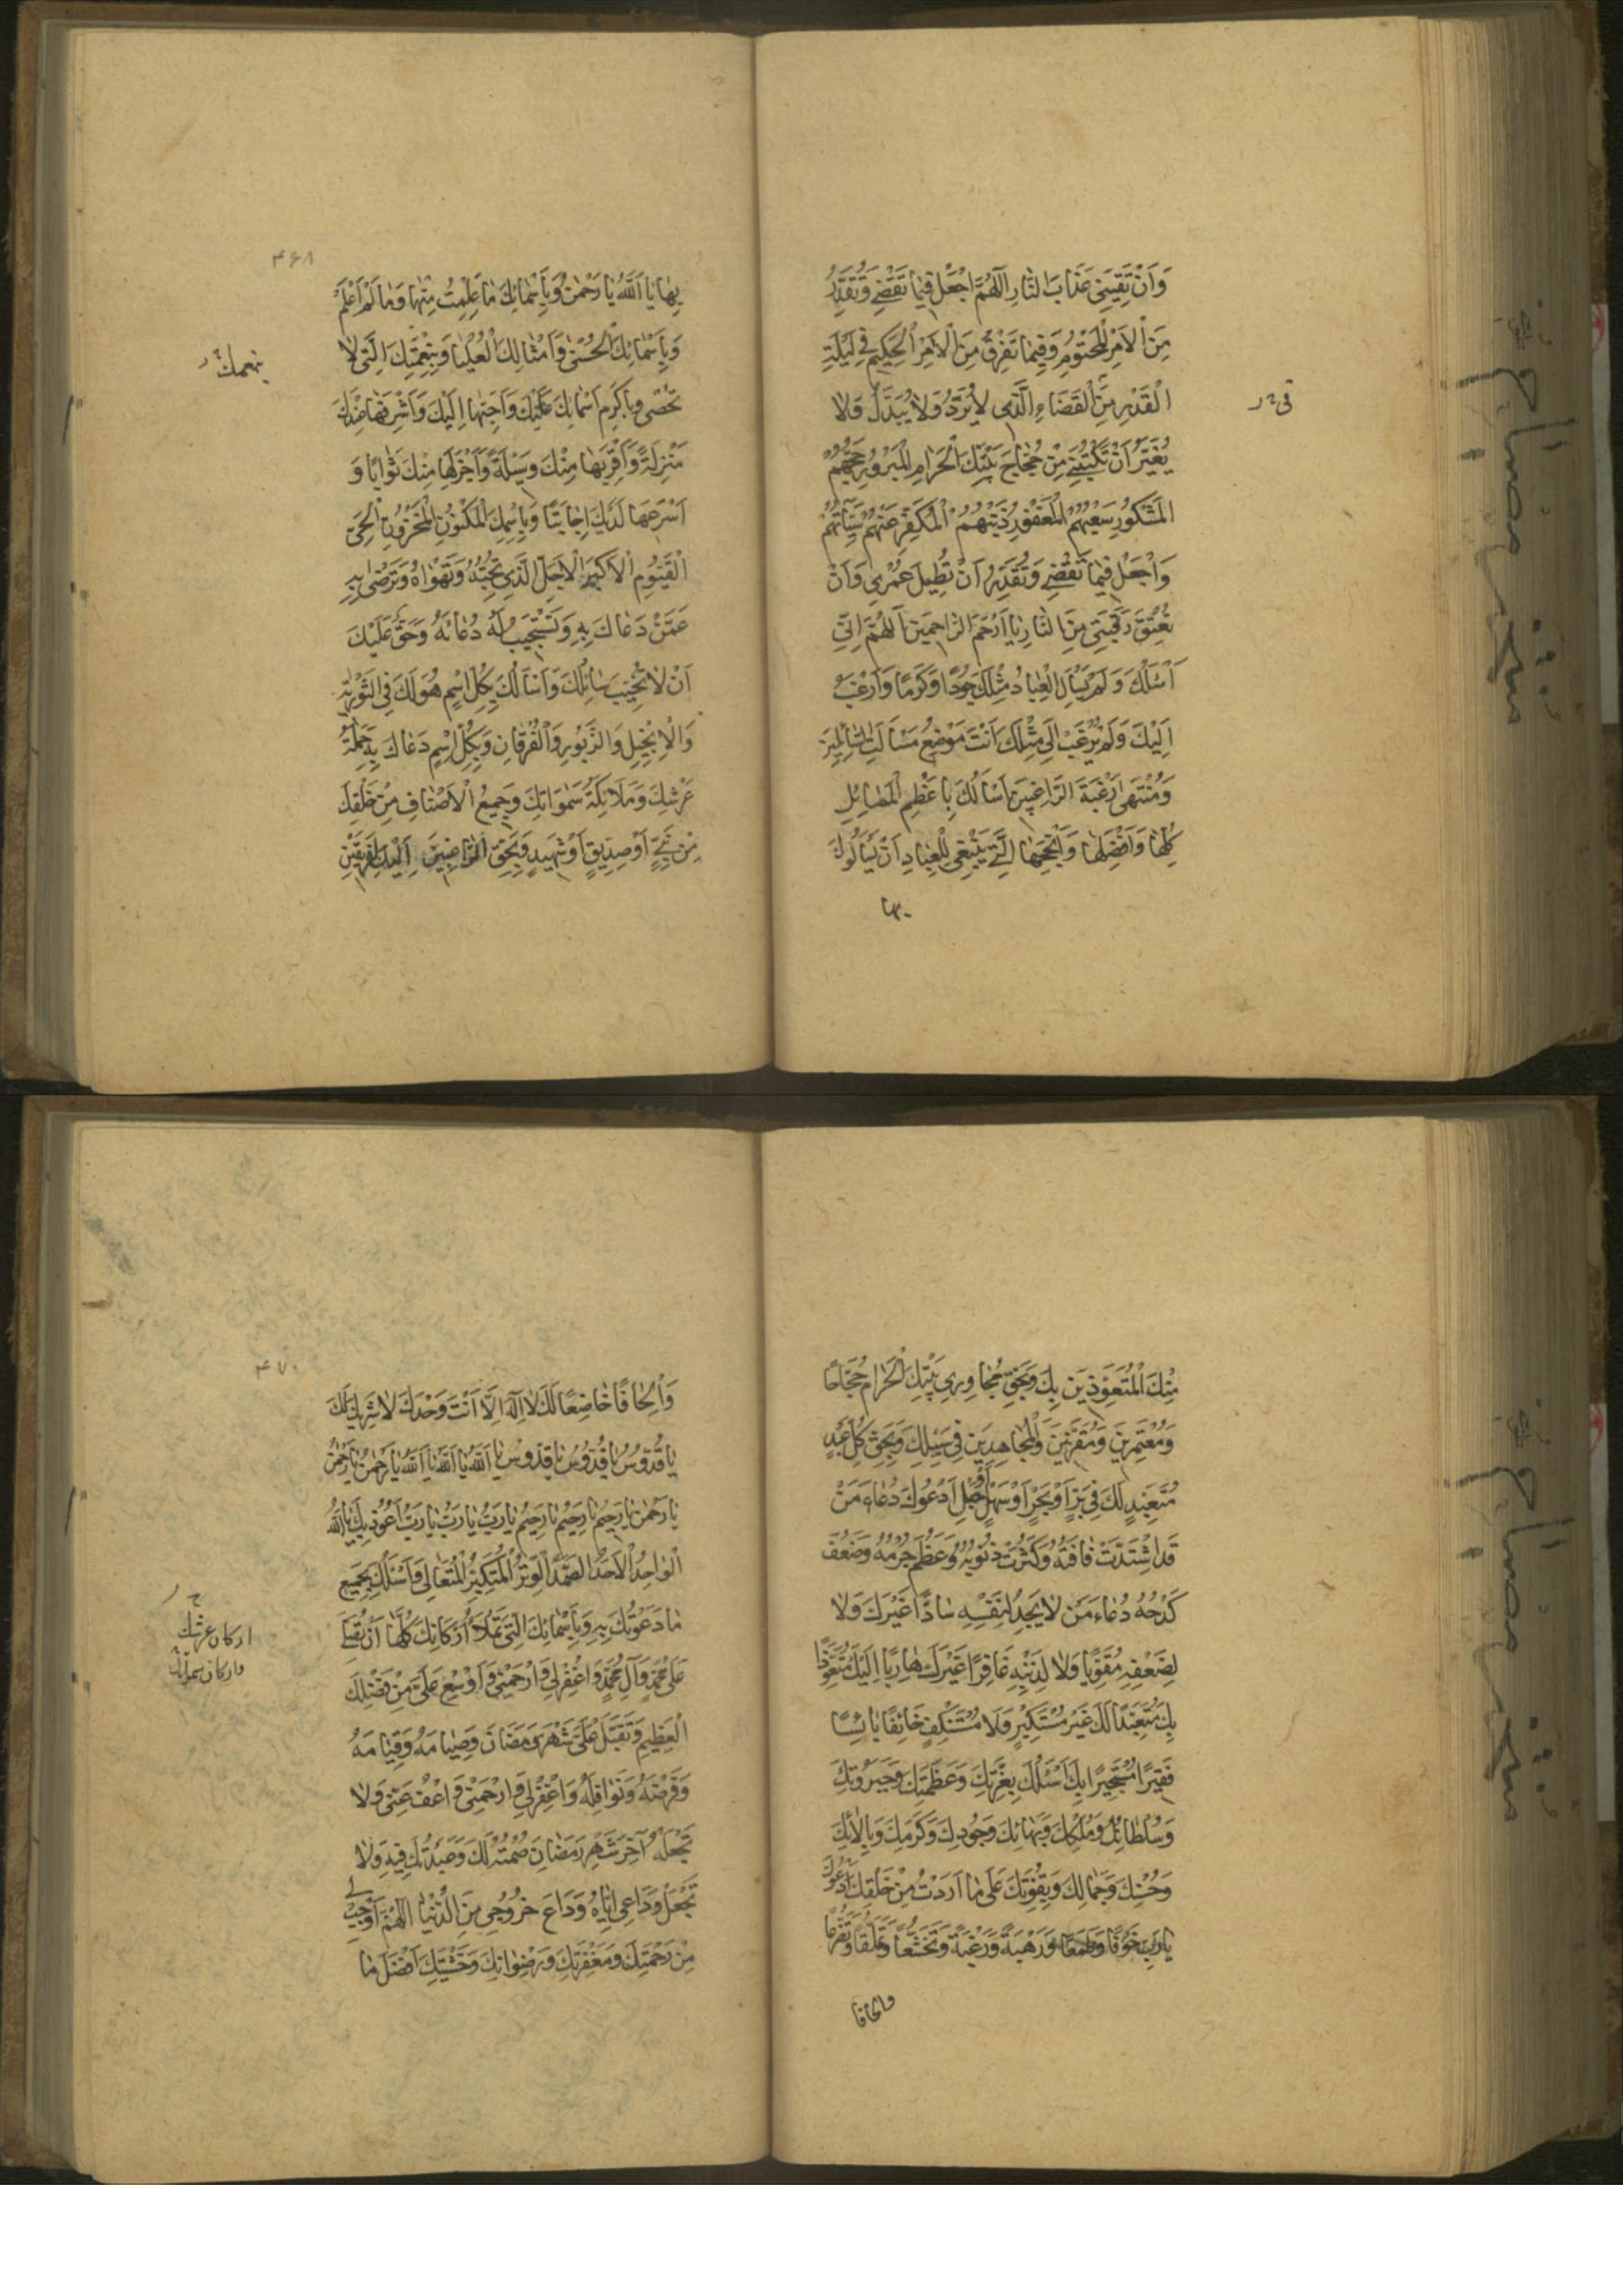 وَاَنْ تَقِیَنِی عَذَابَ النَّارِ اَللّٰهُمَّ اجْعَلْ فِیمَا تَقْضِی وَتُقَدِّرُ
مِنَ الْاَمْرِ الْمَحْتُومِ وَفِیمَا تَفْرُقُ مِنَ الْاَمْرِ الْحَکِیمِ فِی لَیْلَةِ
الْقَدْرِ مِنَ الْقَضَاءِ الَّذِی لَا یُرَدُّ وَلَا یُبَدَّلُ وَلَا
یُغَیَّرُ اَنْ تَکْتُبَنِی مِنْ حُجَّاجِ بَیْتِكَ الْحَرَامِ الْمَبْرُورِ حَجُّهُمْ
الْمَشْکُورِ سَعْیُهُمُ الْمَغْفُورِ ذَنْبُهُمُ الْمُکَفَّرِ عَنْهُمْ سَیِّئَاتُهُمْ
وَاجْعَلْ فِیمَا تَقْضِی وَتُقَدِّرُ اَنْ تُطِیلَ عُمْرِی وَاَنْ
تُعْتِقَ رَقَبَتِی مِنَ النَّارِ یَا اَرْحَمَ الرَّاحِمِینَ اَللّٰهُمَّ اِنِّی
اَسْئَلُكَ وَلَمْ یَسْاَلِ الْعِبَادُ مِثْلَكَ جُودًا وَکَرَمًا وَاَرْغَبُ
اِلَیْكَ وَلَمْ یُرْغَبْ اِلَی مِثْلِكَ اَنْتَ مَوْضِعُ مَسْاَلَةِ السَّائِلِینَ
وَمُنْتَهَی رَغْبَةِ الرَّاغِبِینَ اَسْاَلُكَ بِاَعْظَمِ الْمَسَائِلِ
کُلِّهَا وَاَفْضَلِهَا وَاَنْجَحِهَا الَّتِی یَنْبَغِی لِلْعِبَادِ اَنْ یَسْاَلُوكَ
بها
۴۶۸
بِهَا یَا اَللّٰهُ یَا رَحْمٰنُ وَبِاَسْمَائِكَ مَا عَلِمْتُ مِنْهَا وَمَا لَمْ اَعْلَمْ
وَبِاَسْمَائِكَ الْحُسْنَی وَاَمْثَالِكَ الْعُلْیَا وَبِنِعْمَتِكَ الَّتِی لَا
بنعمك
تُحْصَی وَبِاَکْرَمِ اَسْمَائِكَ عَلَیْكَ وَاَحَبِّهَا اِلَیْكَ وَاَشْرَفِهَا عِنْدَكَ
مَنْزِلَةً وَاَقْرَبِهَا مِنْكَ وَسِیلَةً وَاَجْزَلِهَا مِنْكَ ثَوَابًا وَ
اَسْرَعِهَا لَدَیْكَ اِجَابَةً وَبِاسْمِكَ الْمَکْنُونِ الْمَخْزُونِ الْحَیِّ
الْقَیُّومِ الْاَکْبَرِ الْاَجَلِّ الَّذِی تُحِبُّهُ وَتَهْوَاهُ وَتَرْضَی بِهِ
عَمَّنْ دَعَاكَ بِهِ وَتَسْتَجِیبُ لَهُ دُعَائَهُ وَحَقٌّ عَلَیْكَ
اَنْ لَا تُخَیِّبَ سَائِلَكَ وَاَسْاَلُكَ بِکُلِّ اسْمٍ هُوَ لَكَ فِی التَّوْرٰیةِ
وَالْاِنْجِیلِ وَالزَّبُورِ وَالْفُرْقَانِ وَبِکُلِّ اسْمٍ دَعَاكَ بِهِ حَمَلَةُ
عَرْشِكَ وَمَلَائِکَةُ سَمٰوَاتِكَ وَجَمِیعُ الْاَصْنَافِ مِنْ خَلْقِكَ
مِنْ نَبِیٍّ اَوْ صِدِّیقٍ اَوْ شَهِیدٍ وَبِحَقِّ الرَّاغِبِینَ اِلَیْكَ الْفَرِقِینَ
مِنْكَ الْمُتَعَوِّذِینَ بِكَ وَبِحَقِّ مُجَاوِرِی بَیْتِكَ الْحَرَامِ حُجَّاجًا
وَمُعْتَمِرِینَ وَمُقَدِّسِینَ وَالْمُجَاهِدِینَ فِی سَبِیلِكَ وَبِحَقِّ کُلِّ عَبْدٍ
مُتَعَبِّدٍ لَكَ فِی بَرٍّ اَوْ بَحْرٍ اَوْ سَهْلٍ اَوْ جَبَلٍ اَدْعُوكَ دُعَاءَ مَنْ
قَدِ اشْتَدَّتْ فَاقَتُهُ وَکَثُرَتْ ذُنُوبُهُ وَعَظُمَ جُرْمُهُ وَضَعُفَ
کَدْحُهُ دُعَاءَ مَنْ لَا یَجِدُ لِنَفْسِهِ سَادًّا غَیْرَكَ وَلَا
لِضَعْفِهِ مُقَوِّیًا وَلَا لِذَنْبِهِ غَافِرًا غَیْرَكَ هَارِبًا اِلَیْكَ مُتَعَوِّذًا
بِكَ مُتَعَبِّدًا لَكَ غَیْرَ مُسْتَکْبِرٍ وَلَا مُسْتَنْکِفٍ خَائِفًا بَائِسًا
فَقِیرًا مُسْتَجِیرًا بِكَ اَسْئَلُكَ بِعِزَّتِكَ وَعَظَمَتِكَ وَجَبَرُوتِكَ
وَسُلْطَانِكَ وَمُلْکِكَ وَبَهَائِكَ وَجُودِكَ وَکَرَمِكَ وَبِاٰلَائِكَ
وَحُسْنِكَ وَجَمَالِكَ وَبِقُوَّتِكَ عَلَی مَا اَرَدْتَ مِنْ خَلْقِكَ اَدْعُوكَ
یَا رَبِّ خَوْفًا وَطَمَعًا وَرَهْبَةً وَرَغْبَةً وَتَخَشُّعًا وَتَمَلُّقًا وَتَضَرُّعًا
والحافا
۴۷۰
وَاِلْحَافًا خَاضِعًا لَكَ لَا اِلٰهَ اِلَّا اَنْتَ وَحْدَكَ لَا شَرِیكَ لَكَ
یَا قُدُّوسُ یَا قُدُّوسُ یَا قُدُّوسُ یَا اَللّٰهُ یَا اَللّٰهُ یَا اَللّٰهُ یَا رَحْمٰنُ یَا رَحْمٰنُ
یَا رَحْمٰنُ یَا رَحِیمُ یَا رَحِیمُ یَا رَحِیمُ یَا رَبِّ یَا رَبِّ یَا رَبِّ اَعُوذُ بِكَ یَا اَللّٰهُ
الْوَاحِدُ الْاَحَدُ الصَّمَدُ الْوِتْرُ الْمُتَکَبِّرُ الْمُتَعَالِی وَاَسْئَلُكَ بِجَمِیعِ
مَا دَعَوْتُكَ بِهِ وَبِاَسْمَائِكَ الَّتِی تَمْلَاُ اَرْکَانَكَ کُلَّهَا اَنْ تُصَلِّیَ
ارکان عرشك
عَلَی مُحَمَّدٍ وَآلِ مُحَمَّدٍ وَاغْفِرْ لِی وَارْحَمْنِی وَاَوْسِعْ عَلَیَّ مِنْ فَضْلِكَ
الْعَظِیمِ وَتَقَبَّلْ عَلَیَّ شَهْرَ رَمَضَانَ وَصِیَامَهُ وَقِیَامَهُ
وَفَرْضَهُ وَنَوَافِلَهُ وَاغْفِرْ لِی وَارْحَمْنِی وَاعْفُ عَنِّی وَلَا
تَجْعَلْهُ آخِرَ شَهْرِ رَمَضَانَ صُمْتُهُ لَكَ وَعَبَدْتُكَ فِیهِ وَلَا
تَجْعَلْ وَدَاعِی اِیَّاهُ وَدَاعَ خُرُوجِی مِنَ الدُّنْیَا اَللّٰهُمَّ اَوْجِبْ لِی
مِنْ رَحْمَتِكَ وَمَغْفِرَتِكَ وَرِضْوَانِكَ وَخَشْیَتِكَ اَفْضَلَ مَا